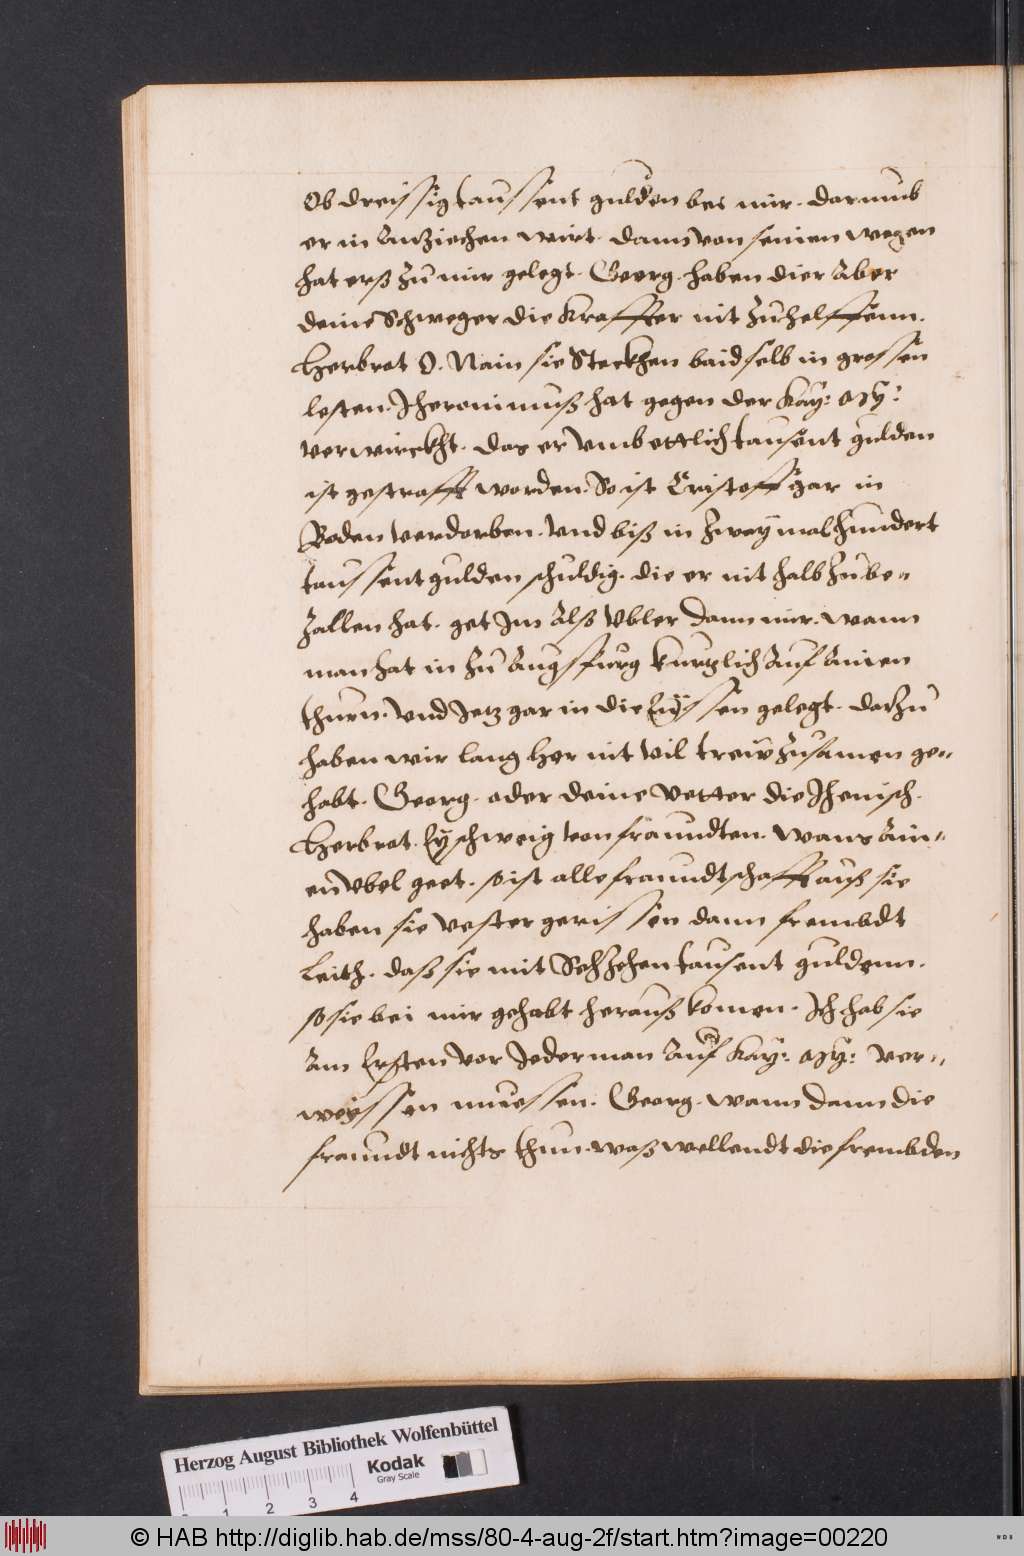 Ob dreissig taussent gulden bei mir. darumb
er in Anziechen wirt. dann von seinen wegen
hat erß zu mir gelegt. Georg. haben dier Aber
deine Schweger die Kraffter nit zuhelffenn.
Herbrot O. Nain sie Steckhen baid selb in grossen
lesten. Jheronimuß hat gegen der Kay: My:
verwirckht. das er Vmb ettlich tausent gulden
ist gestrafft worden. So ist Cristoff gar in
Boden verdorben. Vnd biß in Zwaymal hundert
taussent gulden schuldig. die er nit halb zu be-
zallen hat. get Jm Alß Vbler dann mir. wann
man hat in zu Augspurg kurtzlich Auf Ainen
thurn. Vnd Jetz gar in die Eyssen gelegt. darzu
haben wir lang her nit Vil trew zusamen ge-
habt. Georg. oder deine Vetter die Jhenisch.
Herbrot. Ey schweig von fraundten. wans Ain-
en Vbel geet. so ist alle fraundtschafft auß sie
haben sie vester gerissen dann frembdt
Leith. daß sie mit Sechzehen tausent guldenn.
so sie bei mir gehabt herauß komen. Jch hab sie
Am Ersten vor Jederman Auf Kay: My: ver-
weyssen muessen. Georg. wann dann die
fraundt nichts thun. waß wellendt die frembden
Herzog August Bibliothek Wolfenbüttel
Kodak
Gray Scale
1 2 3 4
© HAB http://diglib.hab.de/mss/80-4-aug-2f/start.htm?image=00220